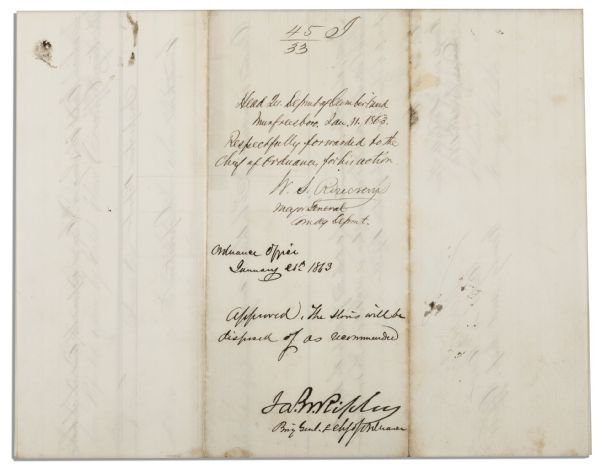 45 J
33
Head Qr. Depmt of Cumberland
Murfreesboro. Jan. 11. 1863.
Respectfully forwarded to the
Chief of Ordnance, for his action
W. S. Rosecrans
Major General
Comdg Depmt.
Ordnance Office
January 21st 1863
Approved. The stores will be
disposed of as recommended
Jas W Ripley
Brig Genl. & Chf of Ordnance